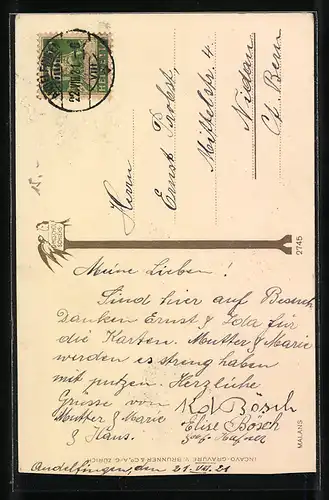 Herrn
Ernst Probst,
Mittelstr. 4.
Nidau
Ct. Bern
15.-
2745
Meine Lieben!
Sind hier auf Besuch
Danken Ernst & Ida für
die Karten. Mutter & Marie
werden es streng haben
mit putzen. Herzliche
Grüsse von Kd Bösch
Mutter & Marie Elise Bösch
& Hans.
Andelfingen, den 21. VII. 21
INCAVO-GRAVURE V. BRUNNER & CO., A.-G. ZÜRICH
MALANS